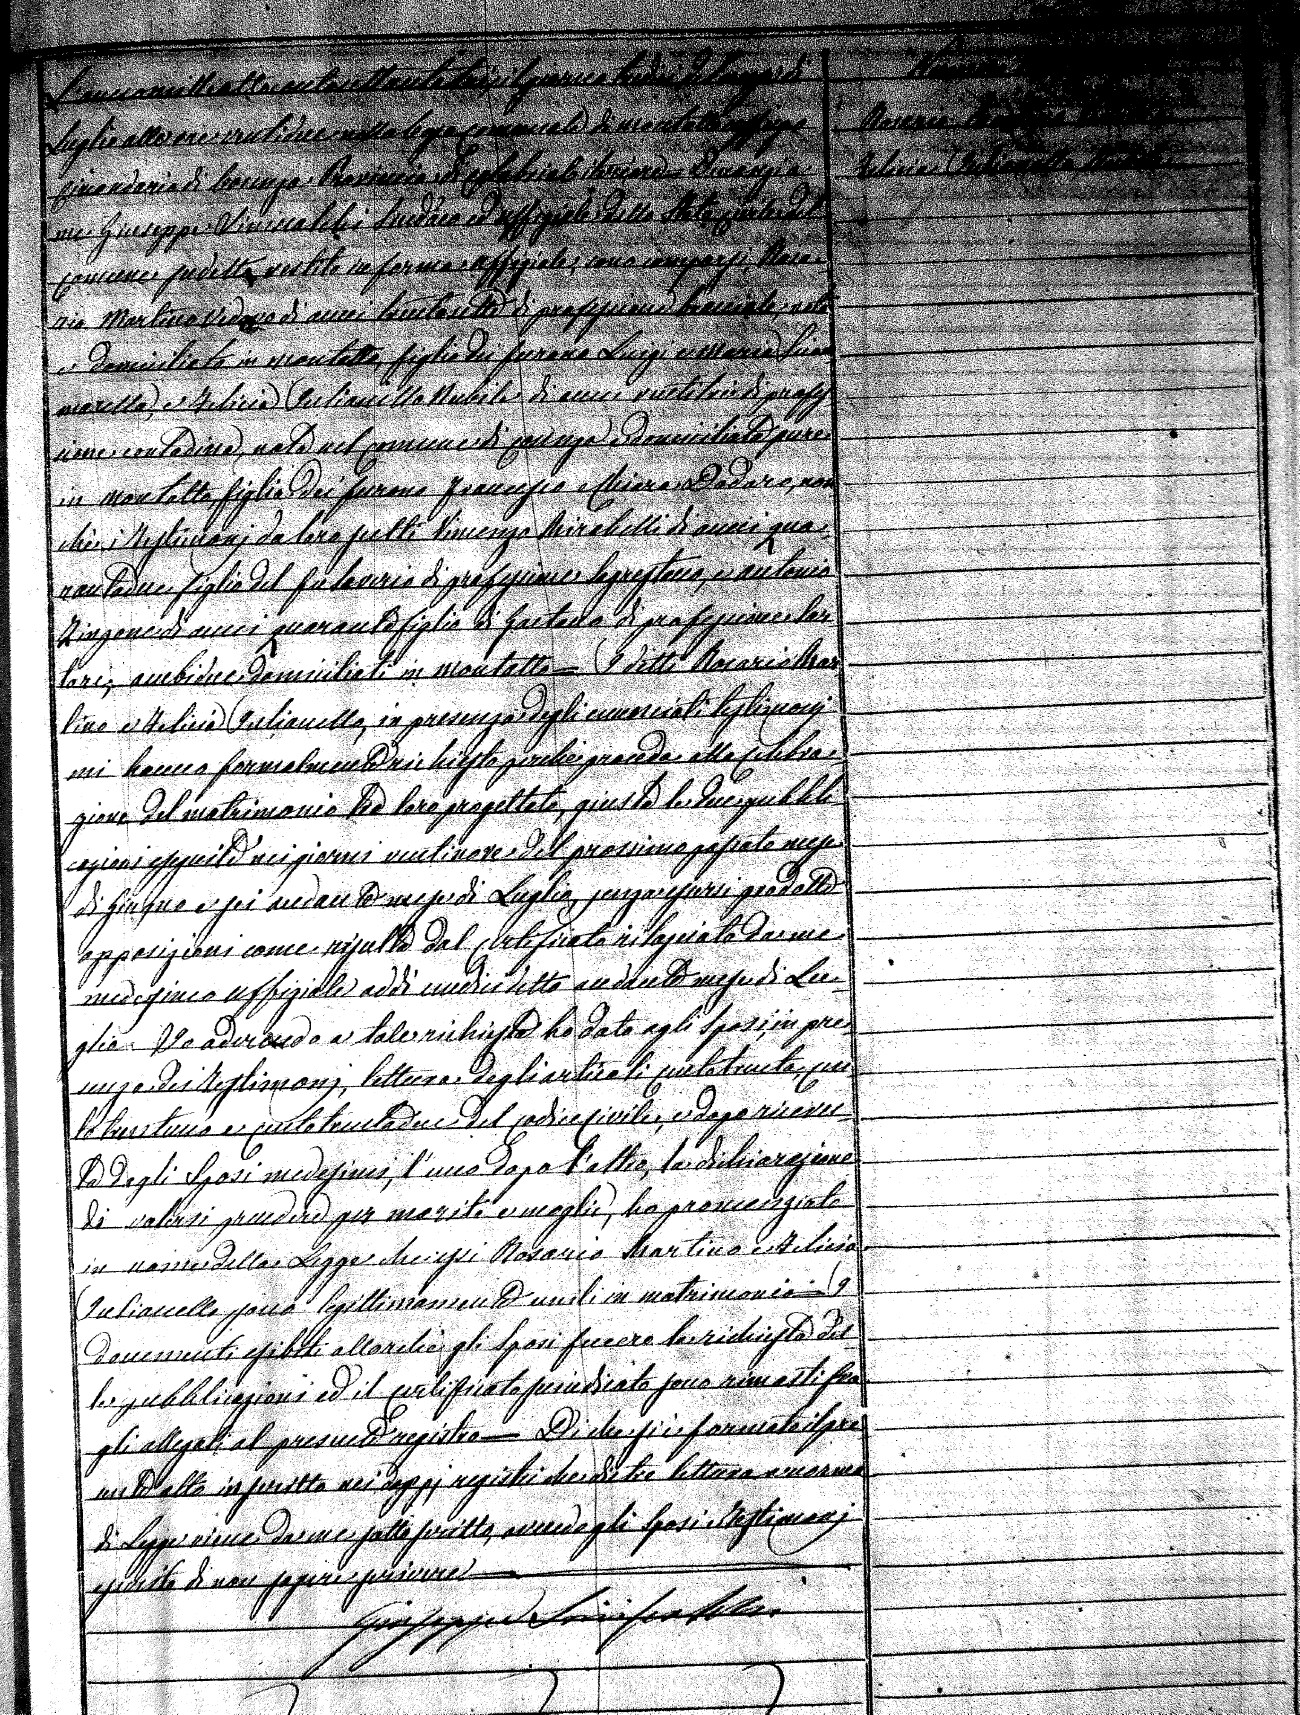 L'anno mille otto cento settanta tre il giorno tredici di
Luglio alle ore ventidue nella Casa comunale di Montalto Uffugo
circondario di Cosenza Provincia di Calabria Citeriore Dinanzi a
me Giuseppe Siniscalchi Sindaco ed uffiziale dello Stato civile del
comune sudetto vestito in forma uffiziale, sono comparsi Rosa
rio Martino Vedovo di anni trentasette di professione bracciale, nato
e domiciliato in Montalto, figlio dei furono Luigi e Maria
marella, e Felicia Iulianello Nubile di anni ventitrè di profess
ione contadina, nata nel comune di Cosenza e domiciliata pure
in Montalto, figlia dei furono Francesco e Chiara Dodaro, non
chè i Testimonj da loro scelti Vincenzo Mirabelli di anni qua
rantadue figlio del fu Saverio di professione sagrestano, e Antonio
Zingone di anni quaranta figlio di Gaetano di professione sar
tore; ambidue domiciliati in Montalto — I detti Rosario Mar
tino e Felicia Iulianello, in presenza degli enunciati testimonj
mi hanno formalmente richiesto perchè proceda alla celebra
zione del matrimonio tra loro progettato, giusta le due pubbli
cazioni eseguite nei giorni ventinove del prossimo passato mese
di Giugno e sei andante mese di Luglio, senza essersi prodotte
opposizioni come risulta dal certificato rilasciato da me
medesimo uffiziale addì undici detto andante mese di Lu-
glio. Io aderendo a tale richiesta ho dato agli Sposi, in pre
senza dei Testimonj, lettura degli articoli centotrenta, cen
totrentuno e centotrentadue del codice civile, e dopo ricevu
ta dagli Sposi medesimi, l'uno dopo l'altro, la dichiarazione
di volersi prendere per marito e moglie, ho pronunziato
in nome della Legge che essi Rosario Martino e Felicia
Iulianello sono legittimamente uniti in matrimonio — I
documenti esibiti allorchè gli Sposi fecero la richiesta del
le pubblicazioni ed il certificato sundicato sono rimasti fra
gli allegati al presente registro — Di che si è formato il pre
sente atto inscritto nei doppj registri che dietro lettura a norma
di Legge viene da me sottoscritto, avendo gli Sposi e Testimonj
asserito di non sapere scrivere —
Giuseppe Siniscalchi
Rosario
Felicia Iulianello